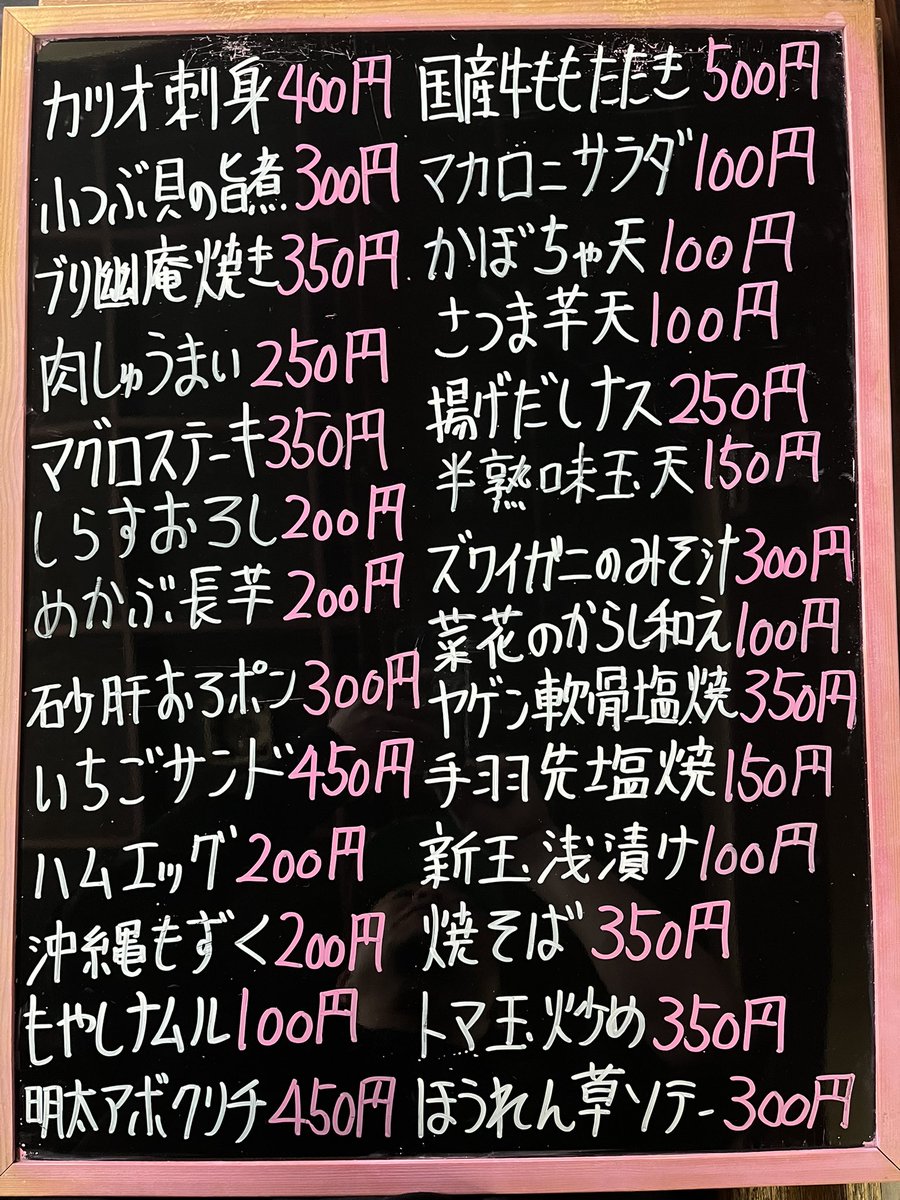 カツオ刺身400円
小つぶ貝の旨煮300円
ブリ幽庵焼き350円
肉しゅうまい250円
マグロステーキ350円
しらすおろし200円
めかぶ長芋200円
砂肝おろポン300円
いちごサンド450円
ハムエッグ200円
沖縄もずく200円
もやしナムル100円
明太アボクリチ450円
国産牛ももたたき500円
マカロニサラダ100円
かぼちゃ天100円
さつま芋天100円
揚げだしナス250円
半熟味玉天150円
ズワイガニのみそ汁300円
菜花のからし和え100円
ヤゲン軟骨塩焼350円
手羽先塩焼150円
新玉浅漬け100円
焼そば350円
トマ玉炒め350円
ほうれん草ソテー300円